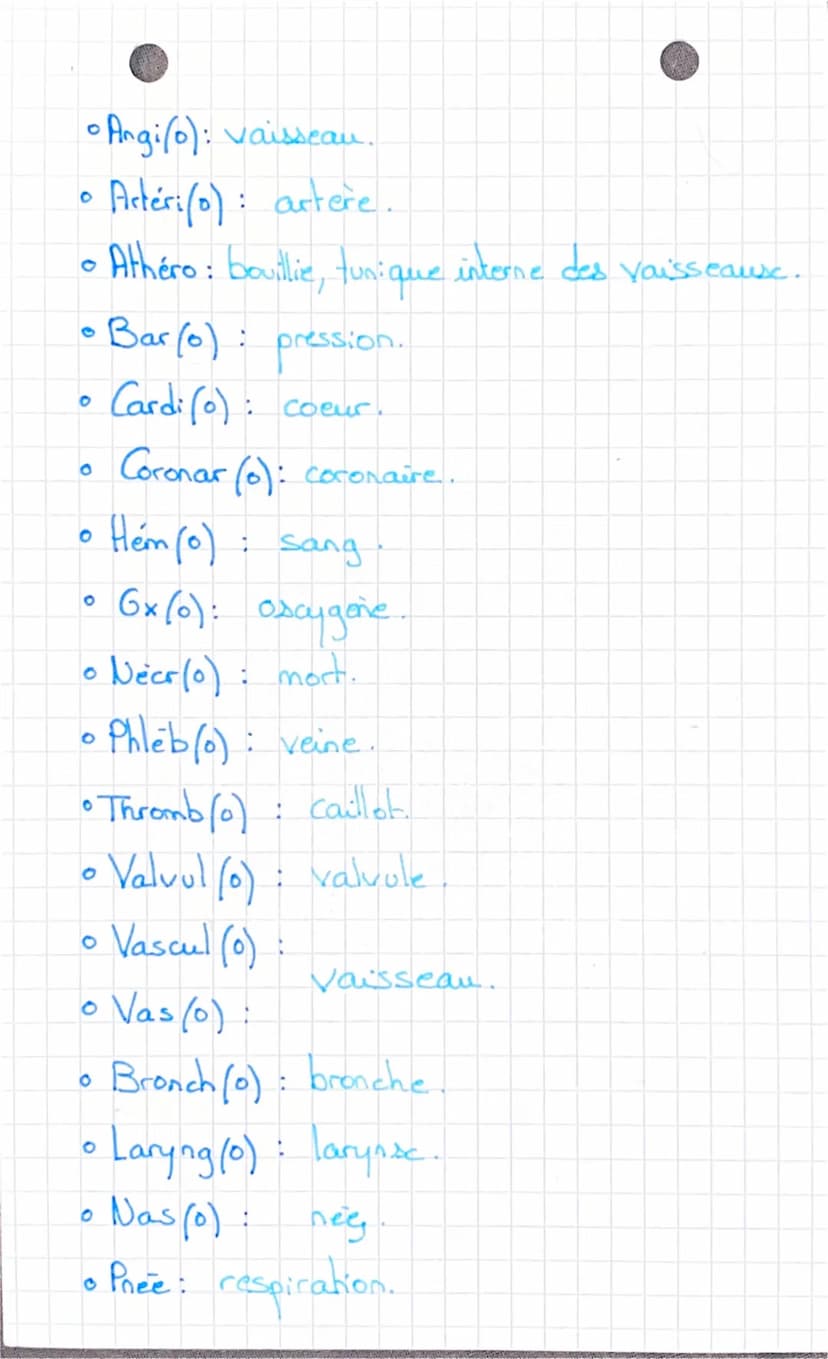 ° Angi(o): vaisseau.
° Artéri(o) : artère.
° Athéro : bouillie, tunique interne des vaisseaux.
° Bar(o) : pression.
° Cardi(o) : coeur.
° Coronar(o): coronaire.
° Hém(o) : sang.
° Ox(o): oxygène.
° Nécr(o) : mort.
° Phléb(o) : veine.
° Thromb(o) : caillot.
° Valvul(o) : valvule.
° Vascul(o) :
vaisseau.
° Vas(o) :
° Bronch(o) : bronche.
° Laryng(o) : larynx.
° Nas(o) : nez.
° Pnée : respiration.